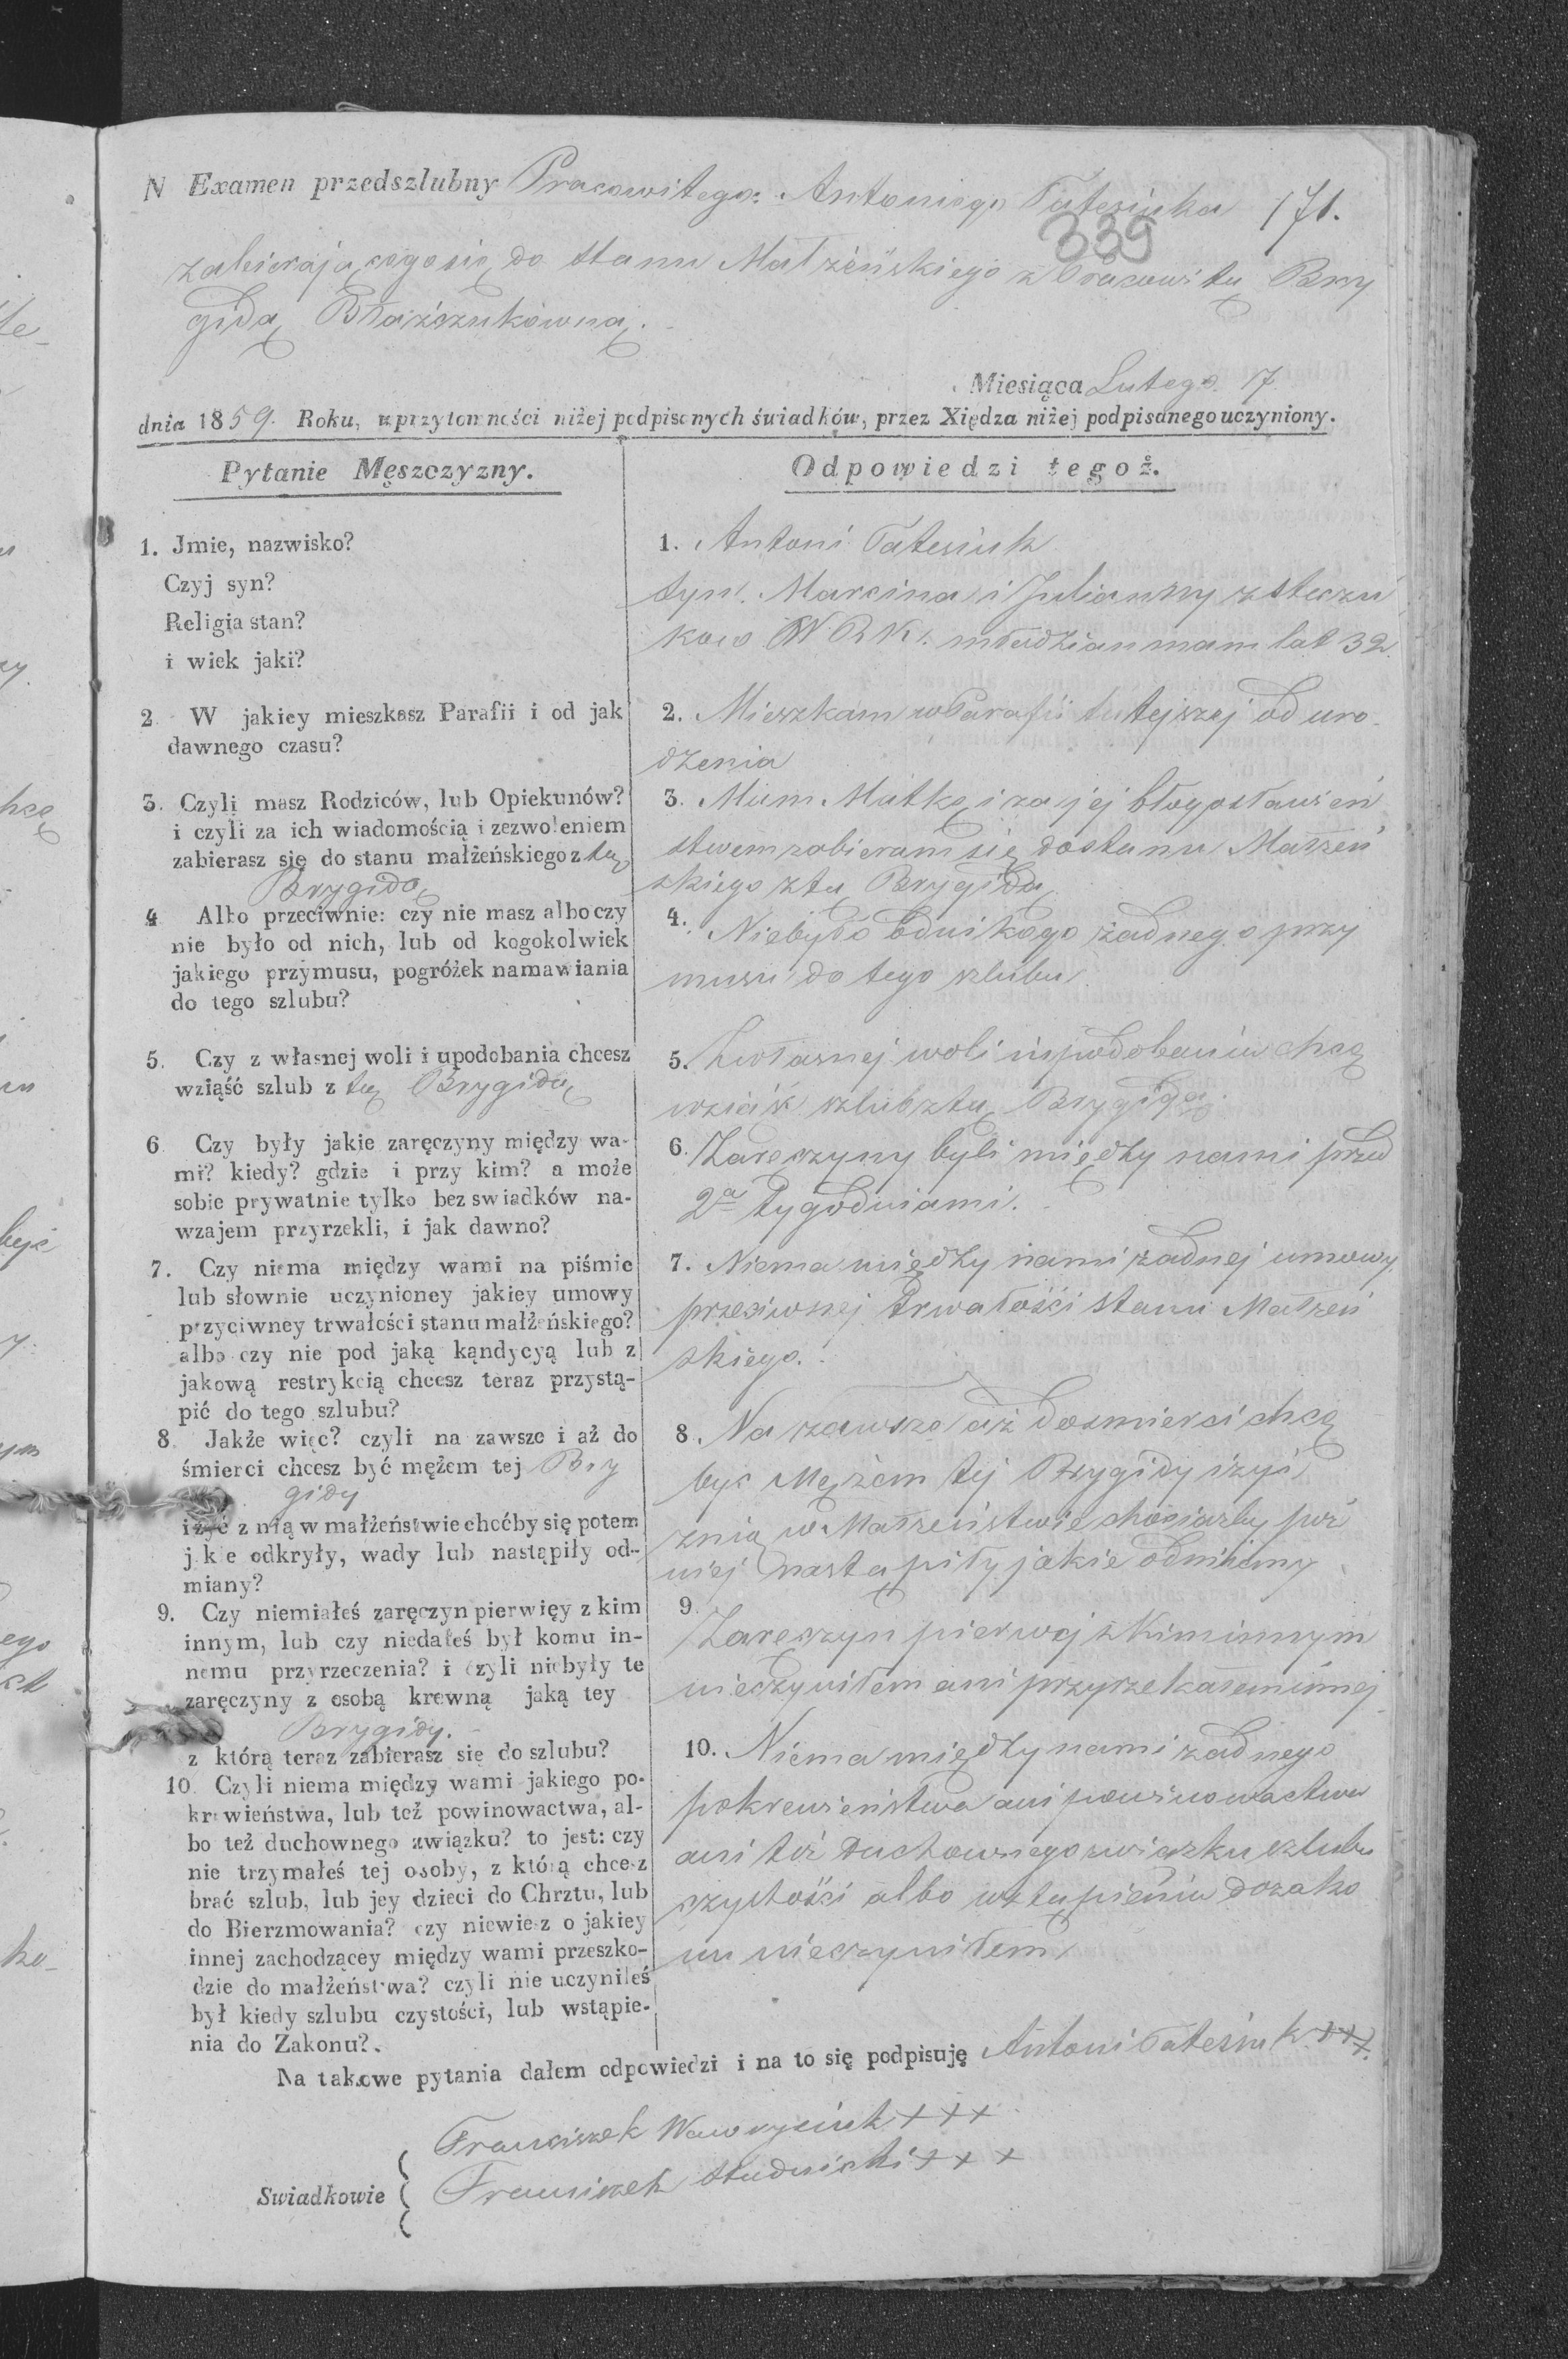 N Examen przedszlubny Pracowitego Antoniego Tatesiuka 171.
339
zabierającego się do stanu Małżeńskiego z Pracowitą Bry
gidą Błaźczukówną.
Miesiąca Lutego 17
dnia 1859. Roku, w przytomności niżej podpisanych świadków, przez Xiędza niżej podpisanego uczyniony.
Pytanie Męszczyzny.
1. Jmie, nazwisko?
Czyj syn?
Religia stan?
i wiek jaki?
2 W jakiey mieszkasz Parafii i od jak
dawnego czasu?
3. Czyli masz Rodziców, lub Opiekunów?
i czyli za ich wiadomością i zezwoleniem
zabierasz się do stanu małżeńskiego z tą
Brygidą
4 Albo przeciwnie: czy nie masz albo czy
nie było od nich, lub od kogokolwiek
jakiego przymusu, pogróżek namawiania
do tego szlubu?
5. Czy z własnej woli i upodobania chcesz
wziąść szlub z tą Brygidą
6 Czy były jakie zaręczyny między wa-
mi? kiedy? gdzie i przy kim? a może
sobie prywatnie tylko bez swiadków na-
wzajem przyrzekli, i jak dawno?
7. Czy niema między wami na piśmie
lub słownie uczynioney jakiey umowy
przyciwney trwałości stanu małżeńskiego?
albo czy nie pod jaką kąndycyą lub z
jakową restrykcią chcesz teraz przystą-
pić do tego szlubu?
8. Jakże więc? czyli na zawsze i aż do
śmierci chcesz być mężem tej Bry
gidy
i żyć z nią w małżeństwie choćby się potem
jakie odkryły, wady lub nastąpiły od-
miany?
9. Czy niemiałeś zaręczyn pierwięy z kim
innym, lub czy niedałeś był komu in-
nemu przyrzeczenia? i czyli niebyły te
zaręczyny z osobą krewną jaką tey
Brygidy.
z którą teraz zabierasz się do szlubu?
10. Czyli niema między wami jakiego po-
krewieństwa, lub też powinowactwa, al-
bo też duchownego związku? to jest: czy
nie trzymałeś tej osoby, z którą chcesz
brać szlub, lub jey dzieci do Chrztu, lub
do Bierzmowania? czy niewiesz o jakiey
innej zachodzącey między wami przeszko-
dzie do małżeństwa? czyli nie uczyniłeś
był kiedy szlubu czystości, lub wstąpie-
nia do Zakonu?.
Odpowiedzi tegoż.
1. Antoni Tatesiuk
syn Marcina i Julianny z Steczu
kow W R K. młodzian mam lat 32.
2. Mieszkam w Parafii tutejszej od uro-
dzenia
3. Mam Matkę i za jej błogosławień
stwem zabieram się do stanu Małżeń
skiego z tą Brygidą
4. Niebyło od nikogo żadnego przy
musu do tego szlubu
5. Z własnej woli i upodobania chcę
wziąść szlub z tą Brygidą.
6. Zaręczyny byli między nami przed
2ª tygodniami.
7. Niema między nami żadnej umowy
przeciwnej trwałości stanu Małżeń
skiego.
8. Na zawsze aż do smierci chcę
być Mężem tej Brygidy i żyć
z nią w Małżeństwie chociażby póź
niej nastąpiły jakie odmiany
9.
Zaręczyn pierwej z kim innym
nieczyniłem ani przyrzekałem innej
10. Niema między nami żadnego
pokrewieństwa ani powinowactwa
ani też Duchownego związku szlubu
czystości albo wstąpienia do zako
nu nieczyniłem
Na takowe pytania dałem odpowiedzi i na to się podpisuję Antoni Tatesiuk +++.
Franciszek Wawryciuk +++
Swiadkowie
Franciszek Studnicki +++